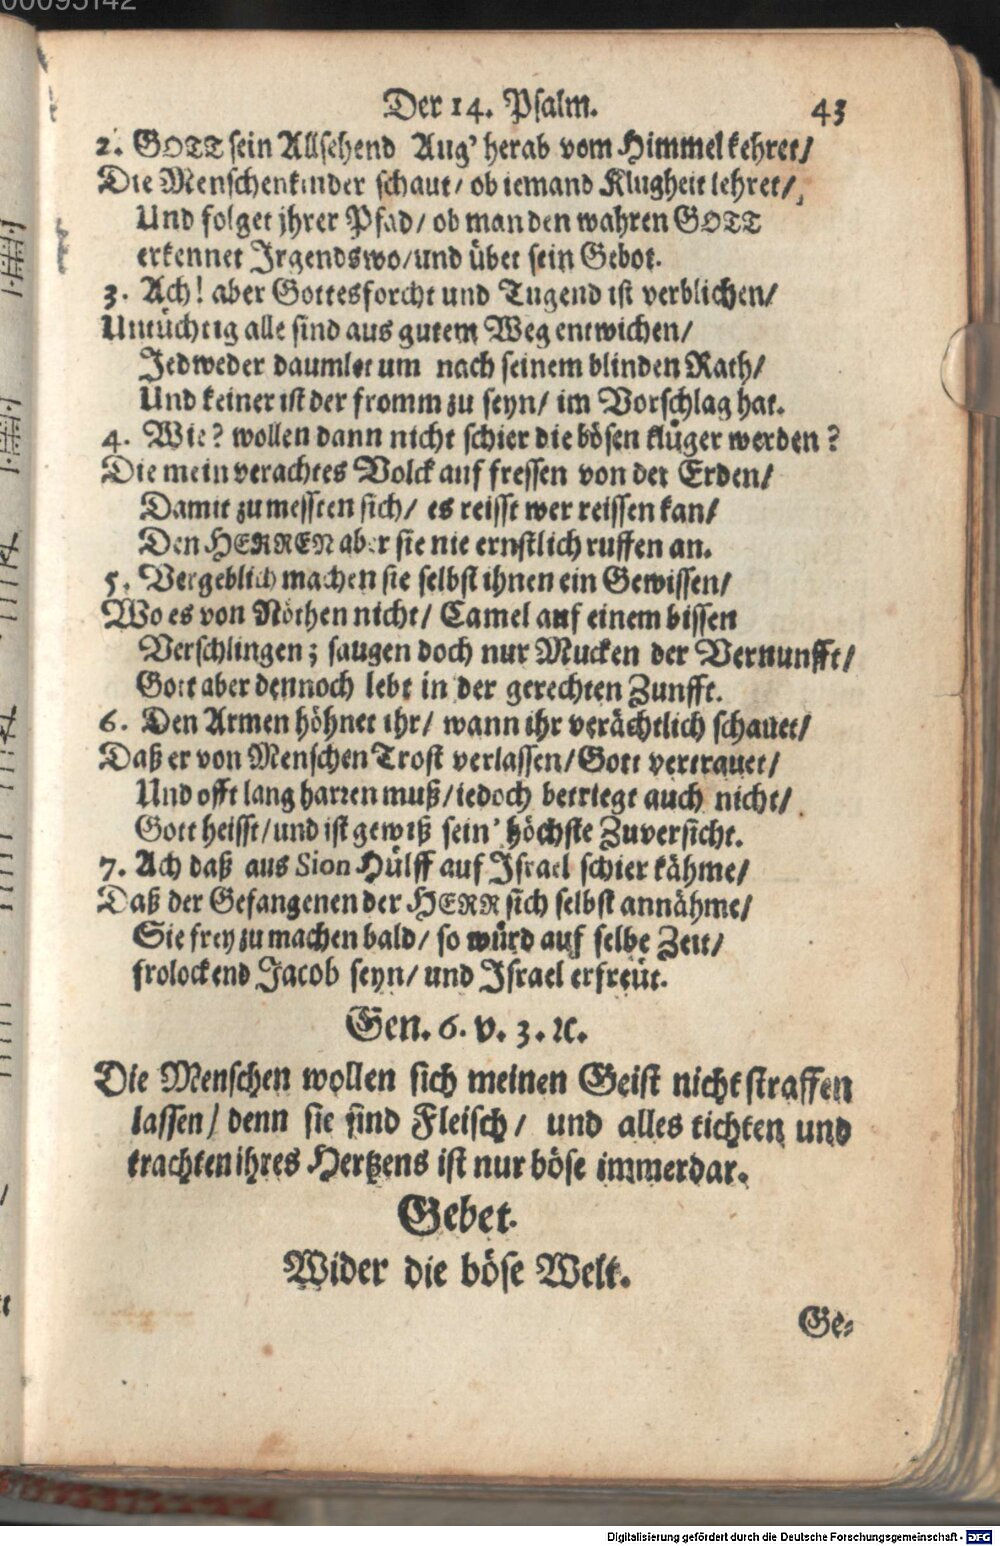 00095142
Der 14. Psalm. 43
2. GOTT sein Allsehend Aug' herab vom Himmel kehret/
Die Menschenkinder schaut/ ob iemand Klugheit lehret/
Und folget jhrer Pfad/ ob man den wahren GOTT
erkennet Irgendswo/ und übet sein Gebot.
3. Ach! aber Gottesforcht und Tugend ist verblichen/
Untüchtig alle sind aus gutem Weg entwichen/
Jedweder daumlet um nach seinem blinden Rath/
Und keiner ist der fromm zu seyn/ im Vorschlag hat.
4. Wie? wollen dann nicht schier die bösen klüger werden?
Die mein verachtes Volck auf fressen von der Erden/
Damit zu messten sich/ es reisst wer reissen kan/
Den HERREN aber sie nie ernstlich ruffen an.
5. Vergeblich machen sie selbst ihnen ein Gewissen/
Wo es von Nöthen nicht/ Camel auf einem bissen
Verschlingen; saugen doch nur Mucken der Vernunfft/
Gott aber dennoch lebt in der gerechten Zunfft.
6. Den Armen höhnet ihr/ wann ihr verächtlich schauet/
Daß er von Menschen Trost verlassen/ Gott vertrauet/
Und offt lang harren muß/ iedoch betriegt auch nicht/
Gott heisst/ und ist gewiß sein' höchste Zuversicht.
7. Ach daß aus Sion Hülff auf Israel schier kähme/
Daß der Gefangenen der HERR sich selbst annähme/
Sie frey zu machen bald/ so würd auf selbe Zeit/
frolockend Jacob seyn/ und Israel erfreüt.
Gen. 6. v. 3. ꝛc.
Die Menschen wollen sich meinen Geist nicht straffen
lassen/ denn sie sind Fleisch/ und alles tichten und
trachten ihres Hertzens ist nur böse immerdar.
Gebet.
Wider die böse Welt.
Ge-
Digitalisierung gefördert durch die Deutsche Forschungsgemeinschaft - DFG